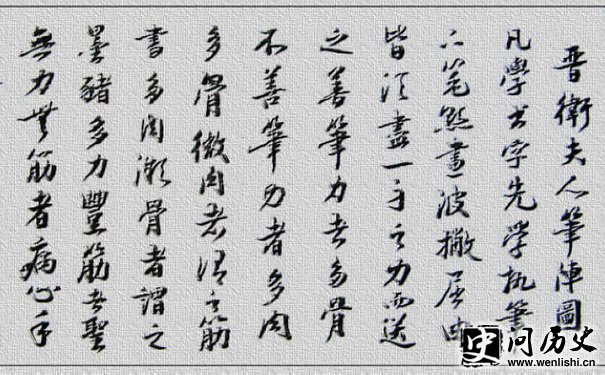 晉衛夫人筆陣圖
凡學书字先學执筆
下笔點畫波撇屈曲
皆须盡一身之力而送
之善筆力者多骨
不善筆力者多肉
多骨微肉者谓之筋
書多肉微骨者謂之
墨豬多力豐筋者聖
無力無筋者病心手
问历史
www.wenlishi.cn